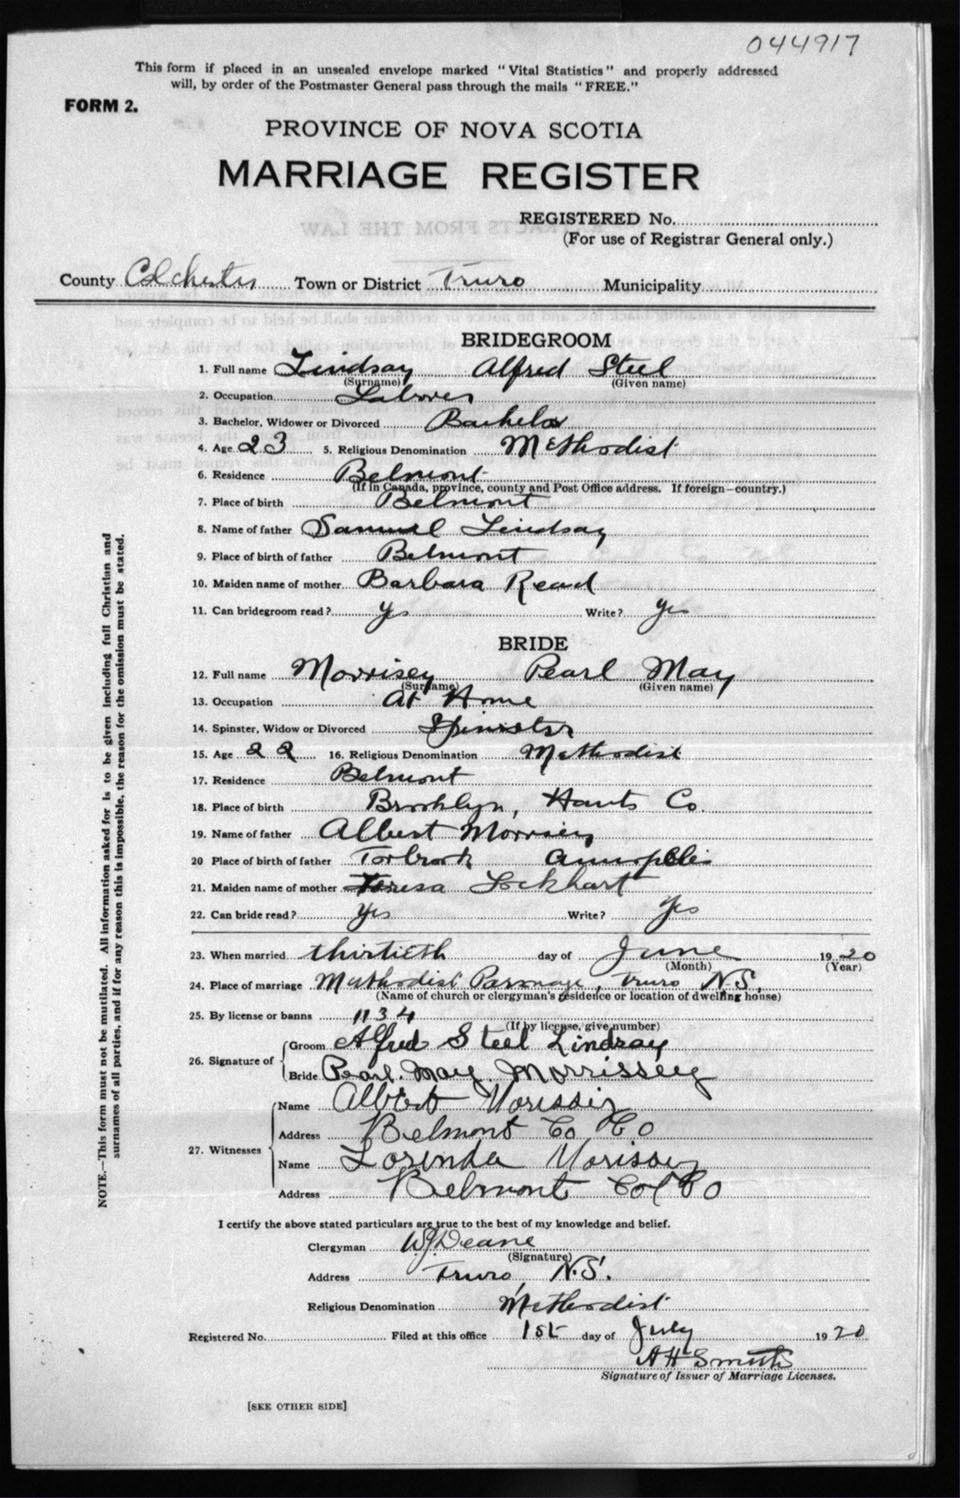 044917
This form if placed in an unsealed envelope marked "Vital Statistics" and properly addressed
will, by order of the Postmaster General pass through the mails "FREE."
FORM 2.
PROVINCE OF NOVA SCOTIA
MARRIAGE REGISTER
REGISTERED No.
(For use of Registrar General only.)
County Colchester Town or District Truro Municipality
BRIDEGROOM
1. Full name Lindsay Alfred Steel
(Surname) (Given name)
2. Occupation Laborer
3. Bachelor, Widower or Divorced Bachelor
4. Age 23 5. Religious Denomination Methodist
6. Residence Belmont
(If in Canada, province, county and Post Office address. If foreign—country.)
7. Place of birth Belmont
8. Name of father Samuel Lindsay
9. Place of birth of father Belmont
10. Maiden name of mother Barbara Read
11. Can bridegroom read? yes Write? yes
BRIDE
12. Full name Morrisey Pearl May
(Surname) (Given name)
13. Occupation At Home
14. Spinster, Widow or Divorced Spinister
15. Age 22 16. Religious Denomination Methodist
17. Residence Belmont
18. Place of birth Brooklyn, Hants Co.
19. Name of father Albert Morrisey
20 Place of birth of father Torbrook Annapolis
21. Maiden name of mother Teresa Lockhart
22. Can bride read? yes Write? yes
23. When married thirtieth day of June 1920
(Month) (Year)
24. Place of marriage Methodist Parsonage, Truro N.S.
(Name of church or clergyman's residence or location of dwelling house)
25. By license or banns 1134
(If by license, give number)
26. Signature of
Groom Alfred Steel Lindsay
Bride Pearl May Morrissey
27. Witnesses
Name Albert
Address Belmont Co Co
Name Lorinda Morissey
Address Belmont Col Co
I certify the above stated particulars are true to the best of my knowledge and belief.
Clergyman W.J. Deane
(Signature)
Address Truro, N.S.
Religious Denomination Methodist
Registered No. Filed at this office 1st day of July 1920
A H Smith
Signature of Issuer of Marriage Licenses.
[SEE OTHER SIDE]
NOTE.—This form must not be mutilated. All information asked for is to be given including full Christian and
surnames of all parties, and if for any reason this is impossible, the reason for the omission must be stated.